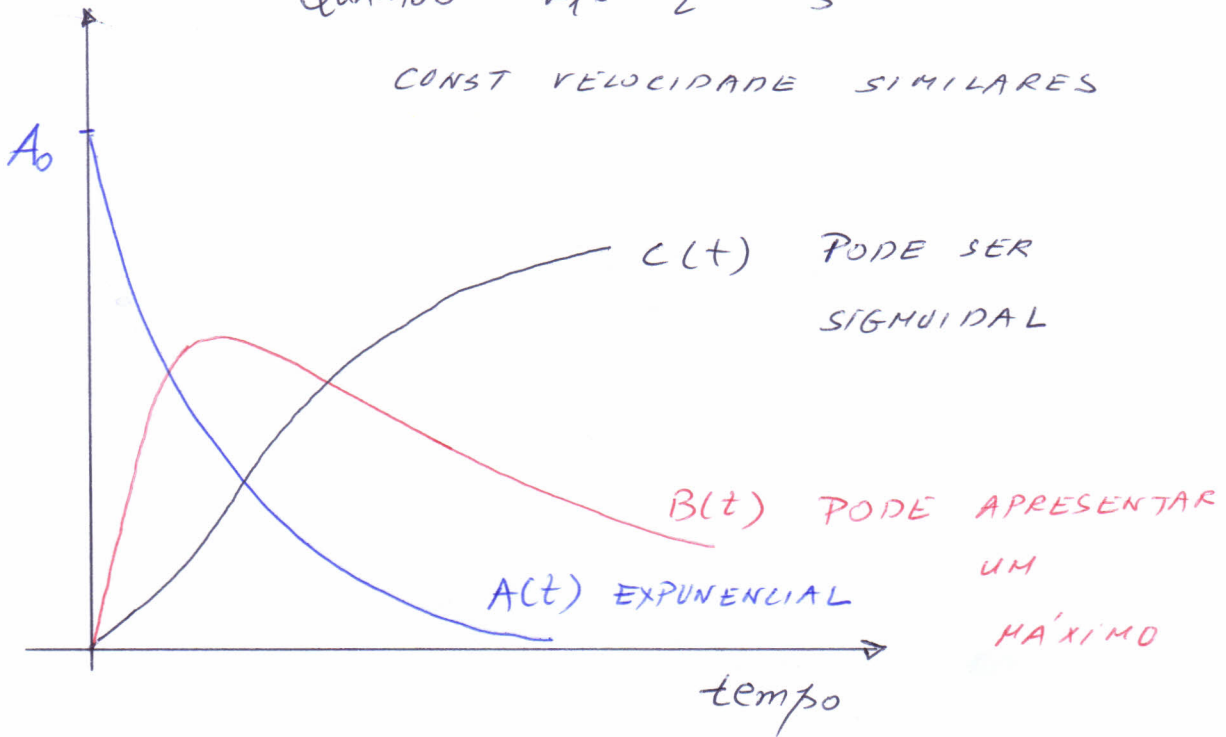 CONST VELOCIDADE SIMILARES
A₀
C(t) PODE SER
SIGMUIDAL
B(t) PODE APRESENTAR
UM
MÁXIMO
A(t) EXPUNENCIAL
tempo